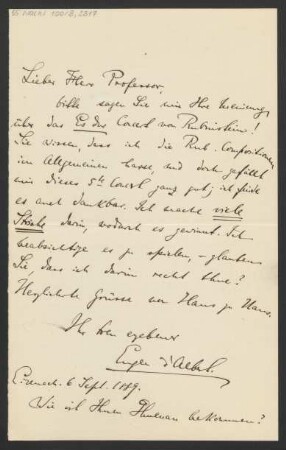 Lieber Herr Professor,
bitte sagen Sie mir Ihre Meinung
über das Es dur Concert von Rubinstein!
Sie wissen, dass ich die Rub. Compositionen
im Allgemeinen hasse, und doch gefällt
mir dieses 5te Concert ganz gut; ich finde
es auch dankbar. Ich mache viele
Striche darin, wodurch es gewinnt. Ich
beabsichtige es zu spielen, – glauben
Sie, dass ich darin recht thue?
Herzlichste Grüsse von Haus zu Haus.
Ihr treu ergebener
Eugen d'Albert.
Eisenach. 6 Sept. 1889.
Wie ist Ihnen bekommen?